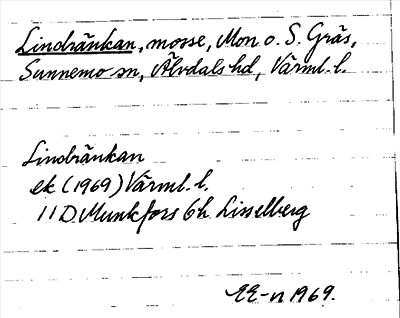 Lindränkan, mosse, Mon o. S. Gräs,
Sunnemo sn, Älvdals hd, Värml. l.
Lindränkan
ek (1969) Värml. l.
11D Munkfors 6h Lisselberg
EE-n 1969.